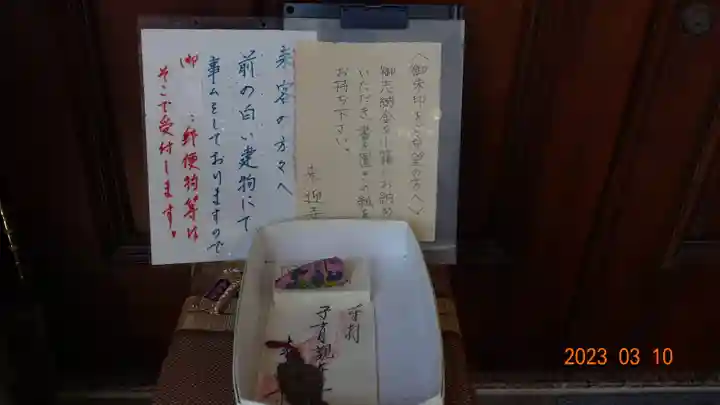 〈御朱印をご希望の方へ〉
御志納金を小箱にお納め
いただき書置きの紙を
お持ち下さい。
来迎寺
来客の方々へ
前の白い建物にて
事ムをしておりますので
郵便物等は
そこで受付します。
子育観
2023 03 10